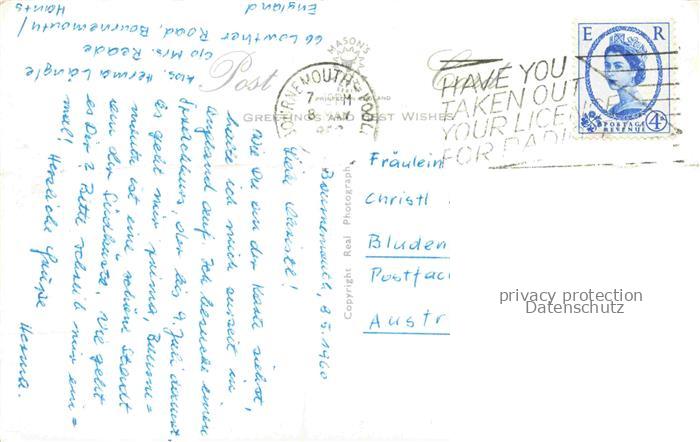 Abs. Herma Längle
c/o Mrs. Reade
66 Lowther Road, Bournemouth/
Hants
England
Post Card
MASON'S
PRINTED IN ENGLAND
GREETINGS AND BEST WISHES
Copyright Real Photograph
HAVE YOU
TAKEN OUT
YOUR LICENCE
FOR RADIO
E R
POSTAGE
REVENUE
4D
Bournemouth, 8.5.1960
Liebe Christl!
Wie Du an der Karte siehst,
halte ich mich zurzeit in
England auf. Ich besuche einen
Sprachkurs, der bis 9. Juli dauert.
es geht mir prima, Bourne=
mouth ist eine schöne Stadt
an der Südküste. Wie geht
es Dir? Bitte schreib mir ein=
mal! Herzliche Grüße
Herma.
Fräulein
Christl
Bluden
Postfac
Austr
privacy protection
Datenschutz